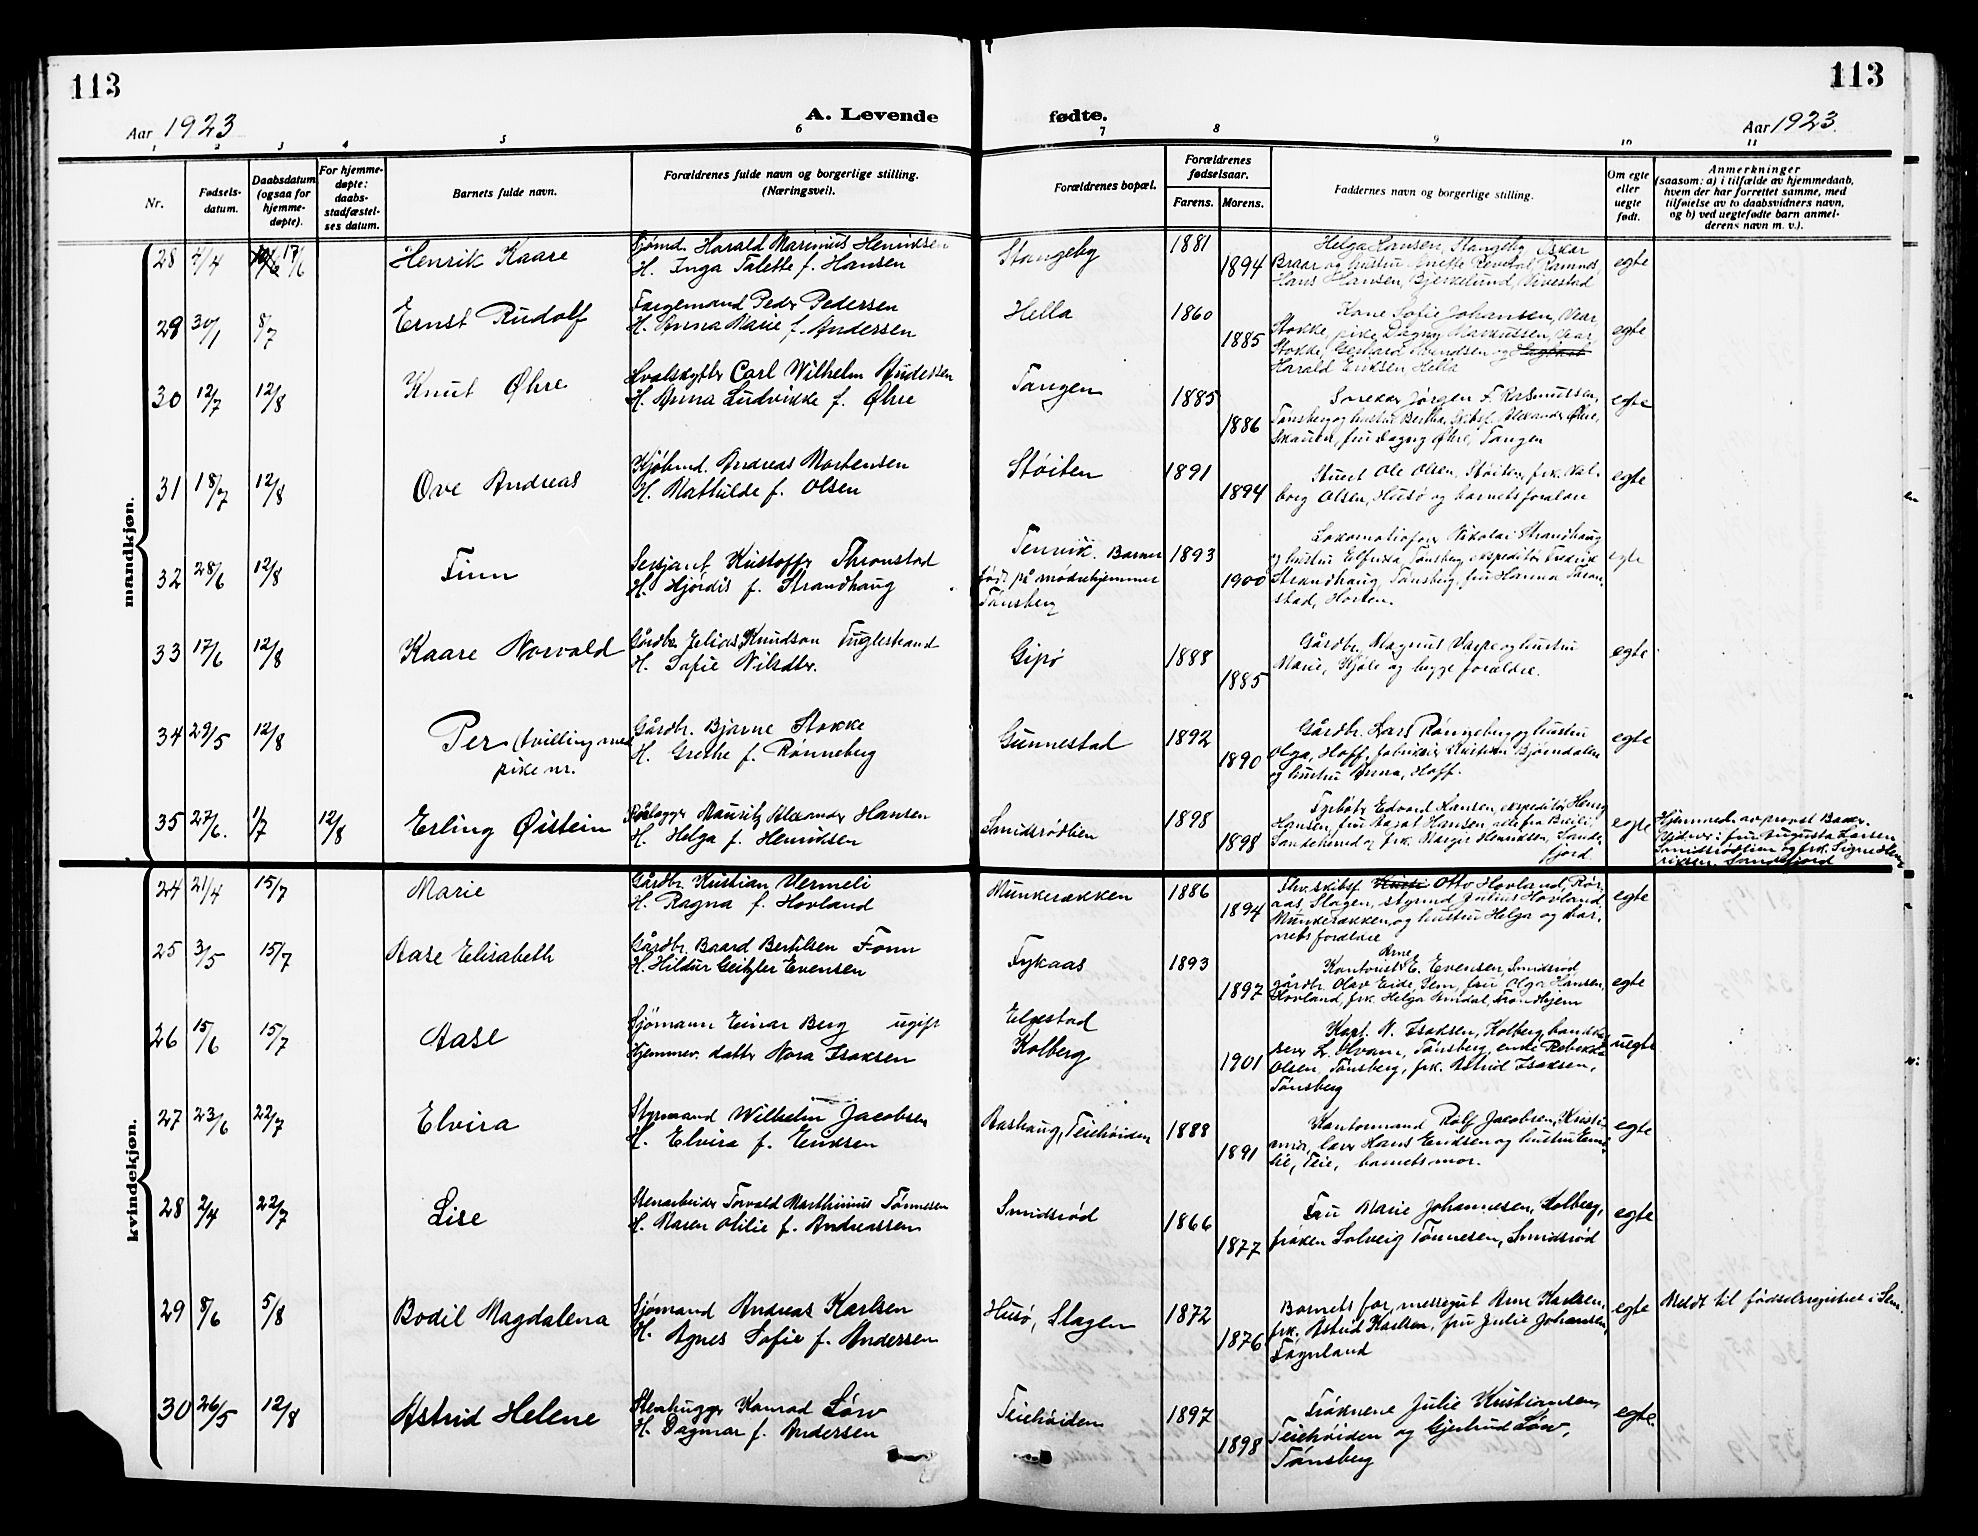 113
113
Aar 1923
A. Levende
fødte.
Aar 1923.
1 2 3 4 5 6 7 8 9 10 11
Nr.
Fødsels-
datum.
Daabsdatum
(ogsaa for
hjemme-
døpte).
For hjemme-
døpte:
daabs-
stadfæstel-
ses datum.
Barnets fulde navn.
Forældrenes fulde navn og borgerlige stilling.
(Næringsvei).
Forældrenes bopæl.
Forældrenes
fødselsaar.
Farens. Morens.
Faddernes navn og borgerlige stilling.
Om egte
eller
uegte
født.
Anmerkninger
(saasom: a) i tilfælde av hjemmedaab,
hvem der har forrettet samme, med
tilføielse av to daabsvidners navn,
og b) ved uegtefødte barn anmel-
derens navn m. v.).
mandkjøn.
28 4/4 17/6 Henrik Kaare
Sjømd. Harald Marinius Henriksen
H. Inga Talette f. Hansen
Stangeby 1881 1894
Helga Hansen, Stangeby Oskar
Braar og hustru Anette Revetal, Ramnes,
Hans Hansen, Bjerkelund, Vivestad
egte
29 30/1 8/7 Ernst Rudolf
Fargemand Peder Pedersen
H. Anna Marie f. Andersen
Hella 1860 1885
Kone Sofie Johansen, Vear,
Stokke, pike Dagny Markussen, Vear,
Stokke, Gerhard Amundsen og
Harald Eriksen Hella
egte
30 12/7 12/8 Knut Øhre
Hvalskytter Carl Wilhelm Andersen
H. Anna Ludvikke f. Øhre
Tangen 1885 1886
Snekker Jørgen F. Rasmussen,
Tønsberg og hustru Bertha, skibsf. Alexander Øhre,
Skauen, fru Dagny Øhre, Tangen
egte
31 18/7 12/8 Ove Andreas
Kjøbmd. Andreas Mortensen
H. Mathilde f. Olsen
Støiten 1891 1894
Stuert Ole Olsen, Støiten, frk. Val-
borg Olsen, Husø og barnets forældre
egte
32 28/6 12/8 Finn
Sersjant Kristoffer Thronstad
H. Hjørdis f. Strandhaug
Tenvik. Barnet
født på mødrehjemmet
Tønsberg
1893 1900
Lokomotivfører Nikolai Strandhaug
og hustru Elfrida, Tønsberg, ekspeditør Fredrik
Strandhaug, Tønsberg, fru Hanna Thron-
stad, Horten.
egte
33 17/6 12/8 Kaare Norvald
Gårdbr. Jelius Knudson Fuglestrand
H. Sofie Nilsdtr.
Gipø 1888 1885
Gårdbr. Magnus Varpe og hustru
Marie, Kjøle og begge forældre.
egte
34 29/5 12/8 Per (tvilling med
pike nr.
Gårdbr. Bjarne Stokke
H. Grethe f. Rønneberg
Gunnestad 1892 1890
Gårdbr. Lars Rønneberg og hustru
Olga, Hoff, fabrikeier Kristian Bjørndalen
og hustru Anna, Hoff.
egte
35 27/6. 1/7 12/8 Erling Øistein
Rørlegger Mauritz Alexander Hansen
H. Helga f. Henriksen
Smidsrødlien 1898 1898
Fyrbøter Edvard Hansen, ekspeditør Henry
Hansen, fru Aagot Hansen, alle fra Breili,
Sandeherred og frk. Margit Henriksen, Sande-
fjord.
egte
Hjemmed. av provst Baker.
Vidner: fru Augusta Larsen
Smidsrødlien og frk. Signe Hen-
riksen Sandefjord
kvindekjøn.
24 21/4 15/7 Marie
Gårdbr. Kristian Vermeli
H. Ragna f. Hovland
Munkerækken 1886 1894
Fhv. skibsf. Otto Hovland, Rør-
aas, Slagen, styrmd Julius Hovland
Munkerækken, og hustru Helga og bar-
nets forældre
egte
25 3/5 15/7 Aase Elisabeth
Gårdbr. Baard Bertilsen Fonn
H. Hildur Geitzler Evensen
Fykaas 1893 1897
Arne
Kontorist E. Evensen, Smidsrød
gårdbr. Olav Eide, Sem, fru Olga Hansen,
Hovland, frk. Helga Amdal, Trondhjem
egte
26 15/6 15/7 Aase
Sjømann Einar Berg ugift
Hjemmev. datter Nora Isaksen
Elgestad
Kolberg
1901
Kapt. N. Isaksen, Kolberg, handels-
reis. L. Olvam, Tønsberg, enke Rebekka
Olsen, Tønsberg, frk. Astrid Isaksen,
Tønsberg
uegte
27 23/6 22/7 Elvira
Styrmand Wilhelm Jacobsen
H. Elvira f. Eriksen
Bashaug, Teiehøiden 1888 1891
Kontormand Rolf Jacobsen, Kristi-
ania, lærer Hans Endsen og hustru Emi-
lie, Teie, barnets mor.
egte
28 2/4 22/7 Lise
Stenarbeider Torvald Marthinius Tønnesen
H. Maren Otilie f. Andreassen
Smidsrød 1866 1877
Fru Marie Johannesen, Kolberg,
frøken Solveig Tønnesen, Smidsrød
egte
29 8/6 5/8 Bodil Magdalena
Sjømand Andreas Karlsen
H. Agnes Sofie f. Andersen
Husø, Slagen 1872 1876
Barnets far, messegut Arne Karlsen,
frk. Astrid Karlsen, fru Julie Johansen,
Føynland
egte
Meldt til fødselsregistret i Sem.
30 26/5 12/8 Astrid Helene
Stenhugger Konrad Løw
H. Dagmar f. Andersen
Teiehøiden 1897 1898
Frøknene Julie Kristiansen,
Teiehøiden og Gjertrud Løw,
Tønsberg
egte.